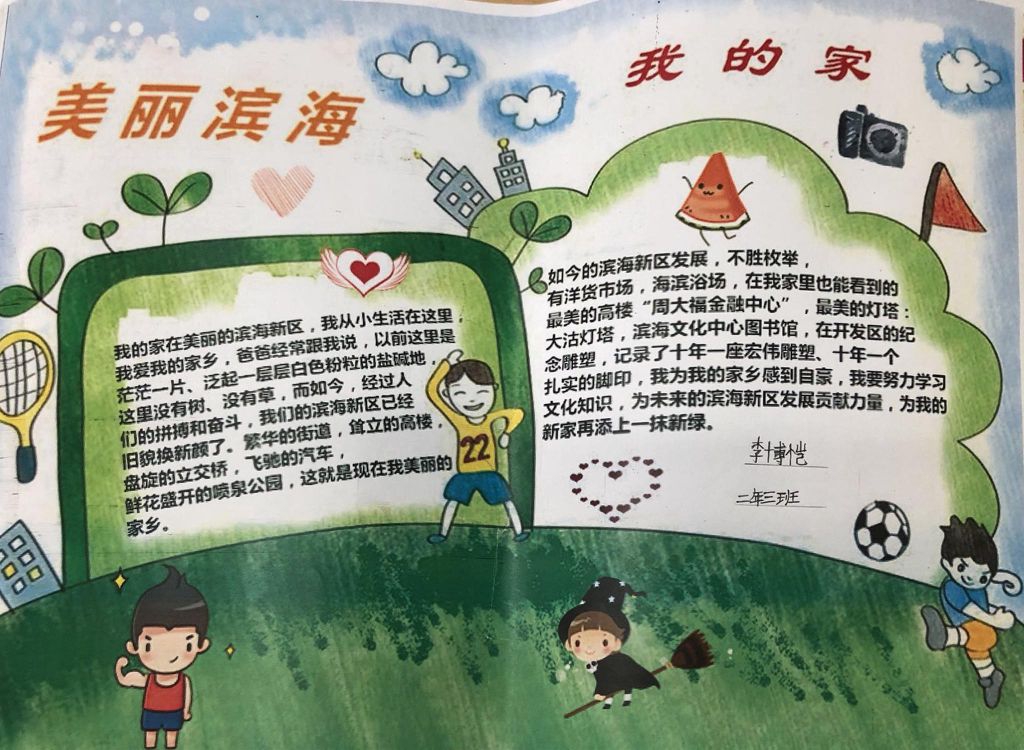 美丽滨海
我的家
我的家在美丽的滨海新区，我从小生活在这里，
我爱我的家乡，爸爸经常跟我说，以前这里是
茫茫一片、泛起一层层白色粉粒的盐碱地，
这里没有树、没有草，而如今，经过人
们的拼搏和奋斗，我们的滨海新区已经
旧貌换新颜了。繁华的街道，耸立的高楼，
盘旋的立交桥，飞驰的汽车，
鲜花盛开的喷泉公园，这就是现在我美丽的
家乡。
22
如今的滨海新区发展，不胜枚举，
有洋货市场，海滨浴场，在我家里也能看到的
最美的高楼“周大福金融中心”，最美的灯塔：
大沽灯塔，滨海文化中心图书馆，在开发区的纪
念雕塑，记录了十年一座宏伟雕塑、十年一个
扎实的脚印，我为我的家乡感到自豪，我要努力学习
文化知识，为未来的滨海新区发展贡献力量，为我的
新家再添上一抹新绿。
李博恺
二年三班